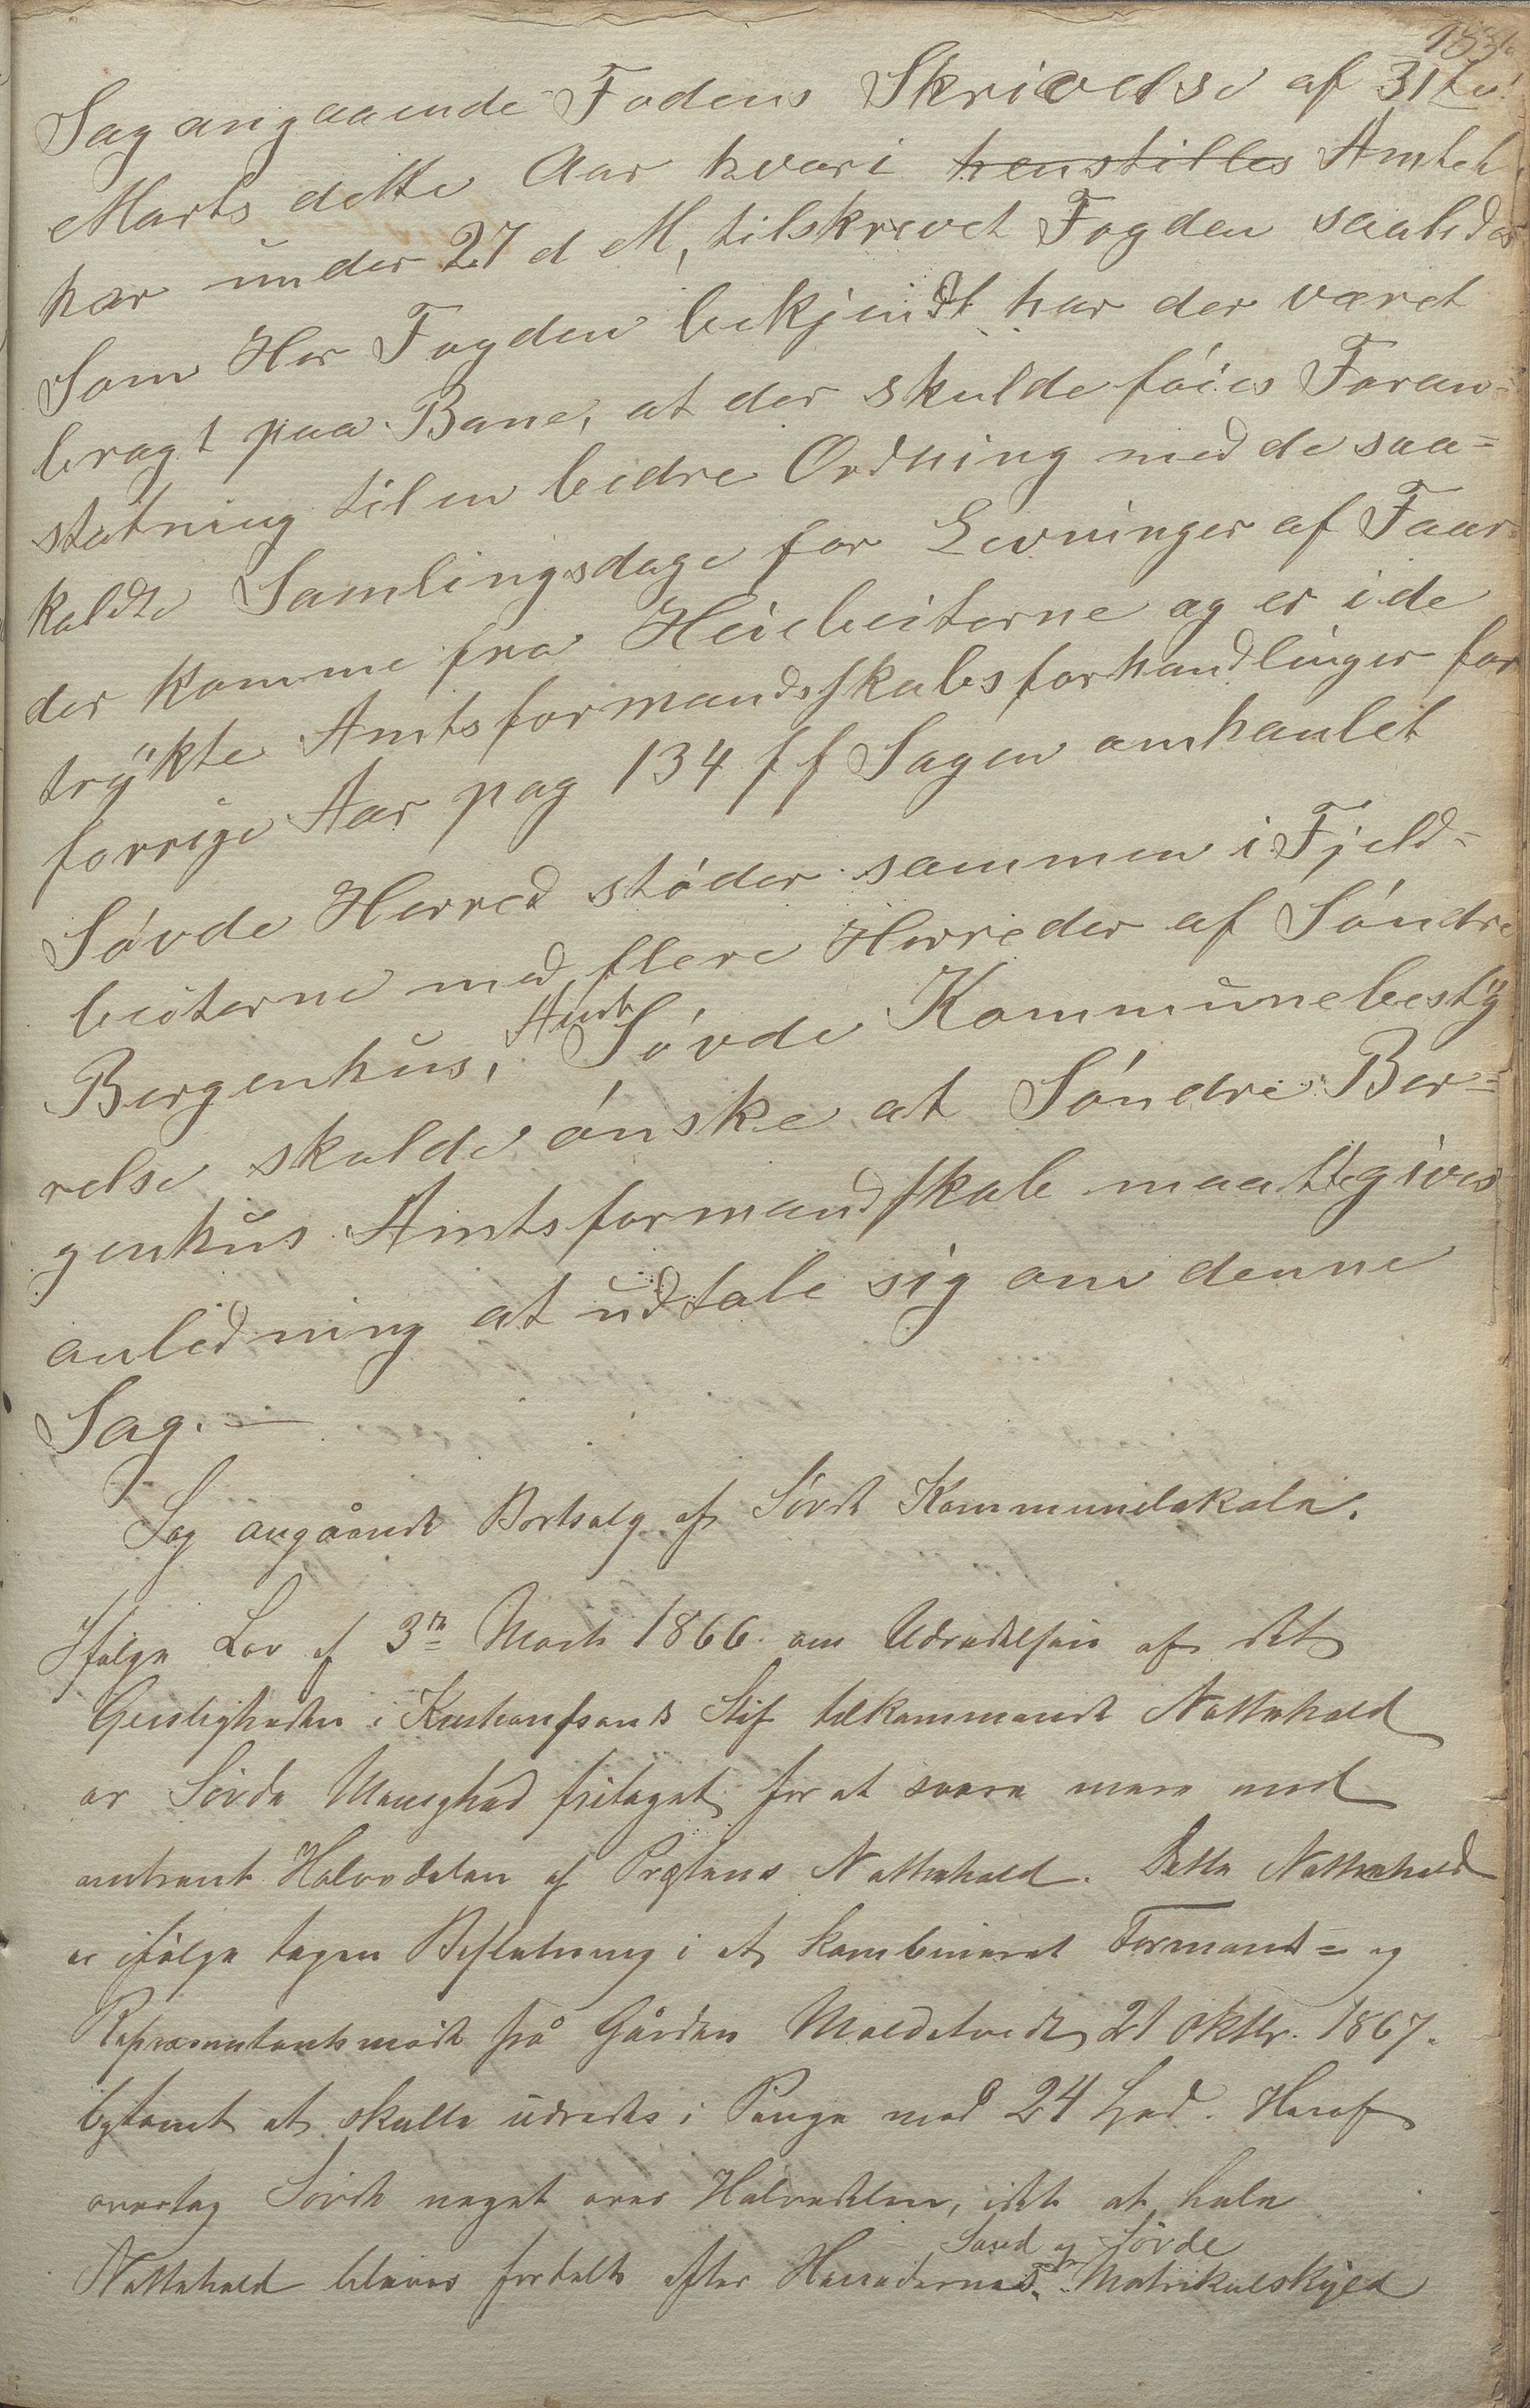 Sag angaaende Fodens Skrivelse af 31te
Marts dette Aar hvori henstilles Amtet
har under 27 d M, tilskrevet Fogden saaledes
Som Her Fogden bekjendt har der været
bragt paa Bane, at der skulde föies Foran=
staltning til en bedre Ordning med de saa=
kaldte Samlingsdage for Levninger af Faar
der komme fra Heiebeiterne og er i de
trykte Amtsformandsskabsforhandlinger for
forrige Aar pag 134 ff Sagen omhanlet
Søvde Herred støder sammen i Fjeld=
beiterne med flere Herreder af Søndre
Bergenhus, Søvde Kommunebesty
relse skulde ønske at Søndre Ber=
genhus Amtsformandskab maatte gives
anledning at udtale sig om denne
Sag. —
Sag angående Bortsalg af Søvde Kommunelokale.
Ifølge Lov af 3die Marts 1866 om Udredelsen af det
Geistligheden i Kristiansands Stift tilkommende Nattehold
er Søvde Menighed fritaget for at svare mere end
omtrent Halvdelen af Præstens Nattehold. Dette Nattehold
er ifølge tagen Beslutning i et kombineret Formand= og
Repræsentantmøde på Gården 21 Oktbr. 1867.
bestemt at skulle udredes i Penge med 24 Spd. Heraf
overtog Søvde noget over Halvdelen, idet at hele
Sand og Søvde
Nattehold bleves fordelt efter Herredernes Matrikulskyld